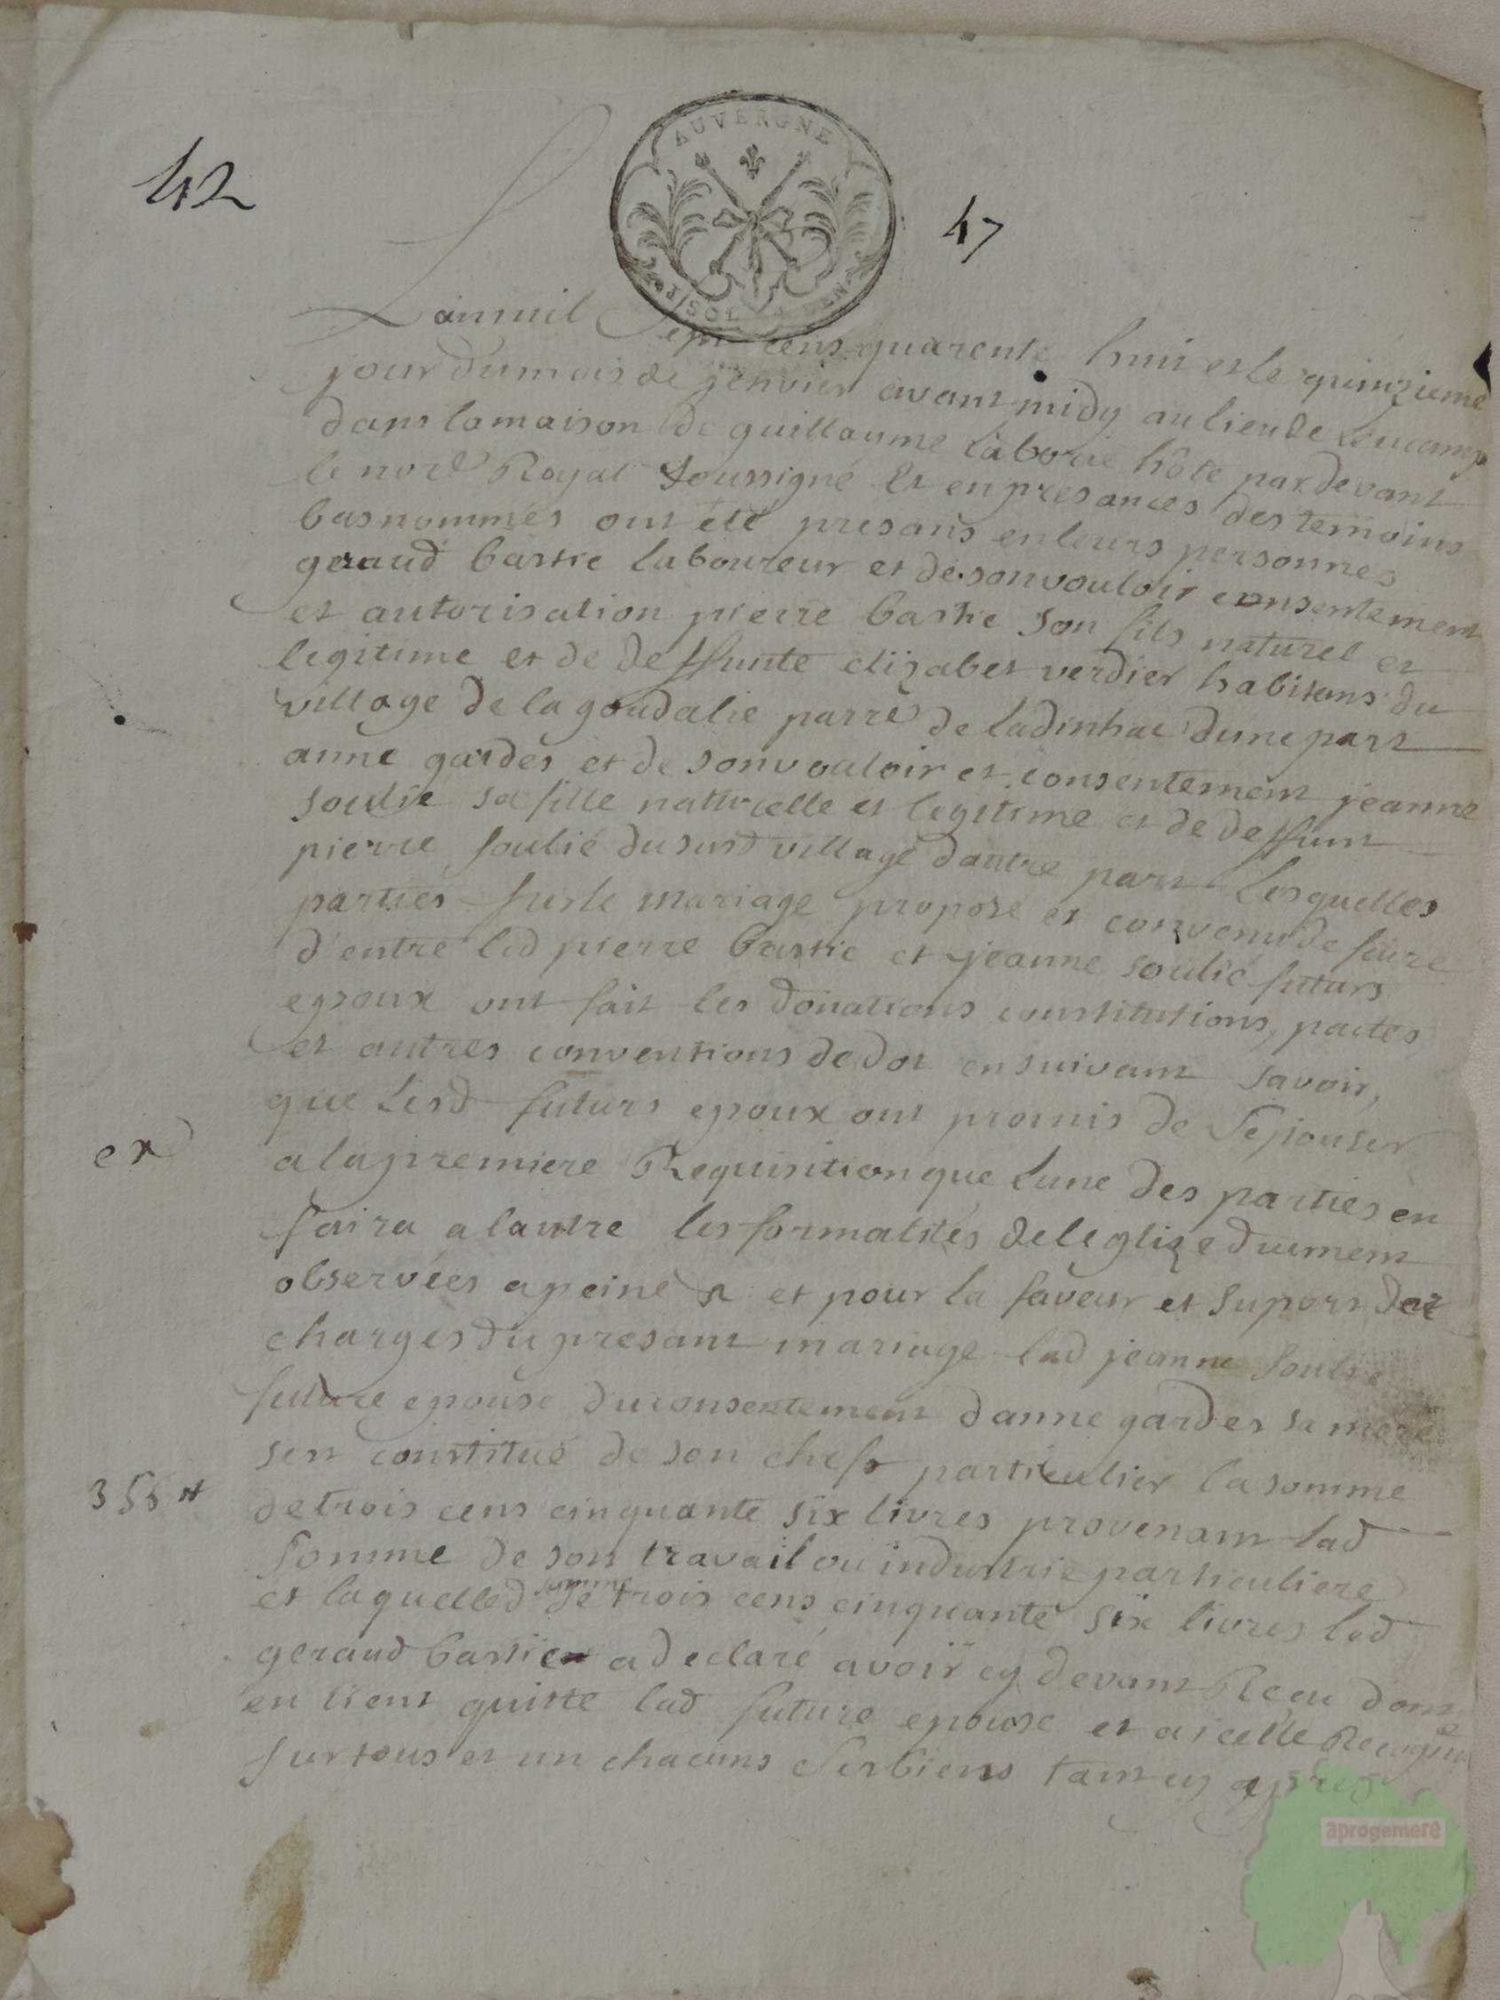 42
AUVERGNE
47
Lan mil sept cens quarente huit et le quinzieme
jour du mois de jenvier avant midy au lieu de Leucamp
dans la maison de guillaume laborie hôte par devant
le nore Royal soussigné et en presances des temoins
bas nommés ont été presans en leurs personnes
geraud bastie laboureur et de son vouloir consentement
et autorisation pierre bastie son fils naturel et
legitime et de deffunte elizabet verdier habitans du
village de la goudalie parre de ladinhac d'une part
anne gardes et de son vouloir et consentement jeanne
soulié sa fille naturelle et legitime et de deffunt
pierre soulié du susd village d'autre part lesquelles
parties sur le mariage proposé et convenu de faire
d'entre led pierre bastie et jeanne soulié futurs
epoux ont fait les donations constitutions, pactes
et autres conventions de dot en suivant savoir,
que lesd futurs epoux ont promis de s'epouser
a la premiere Requisition que lune des parties en
faira a lautre les formalités de leglize duement
observées a peine & et pour la faveur et suport des
charges du presant mariage lad jeanne soulié
future epouse du consentement danne gardes sa mere
sest constitué de son cheff particulier la somme
356 lt
de trois cens cinquante six livres provenant lad
somme de son travail ou industrie particuliere
et laquelle d somme de trois cens cinquante six livres led
geraud bastie a declaré avoir cy devant Reçu dont
en tient quitte lad future epouse et a icelle
sur tous et un chacuns ses biens tant cy apres
aprogemere